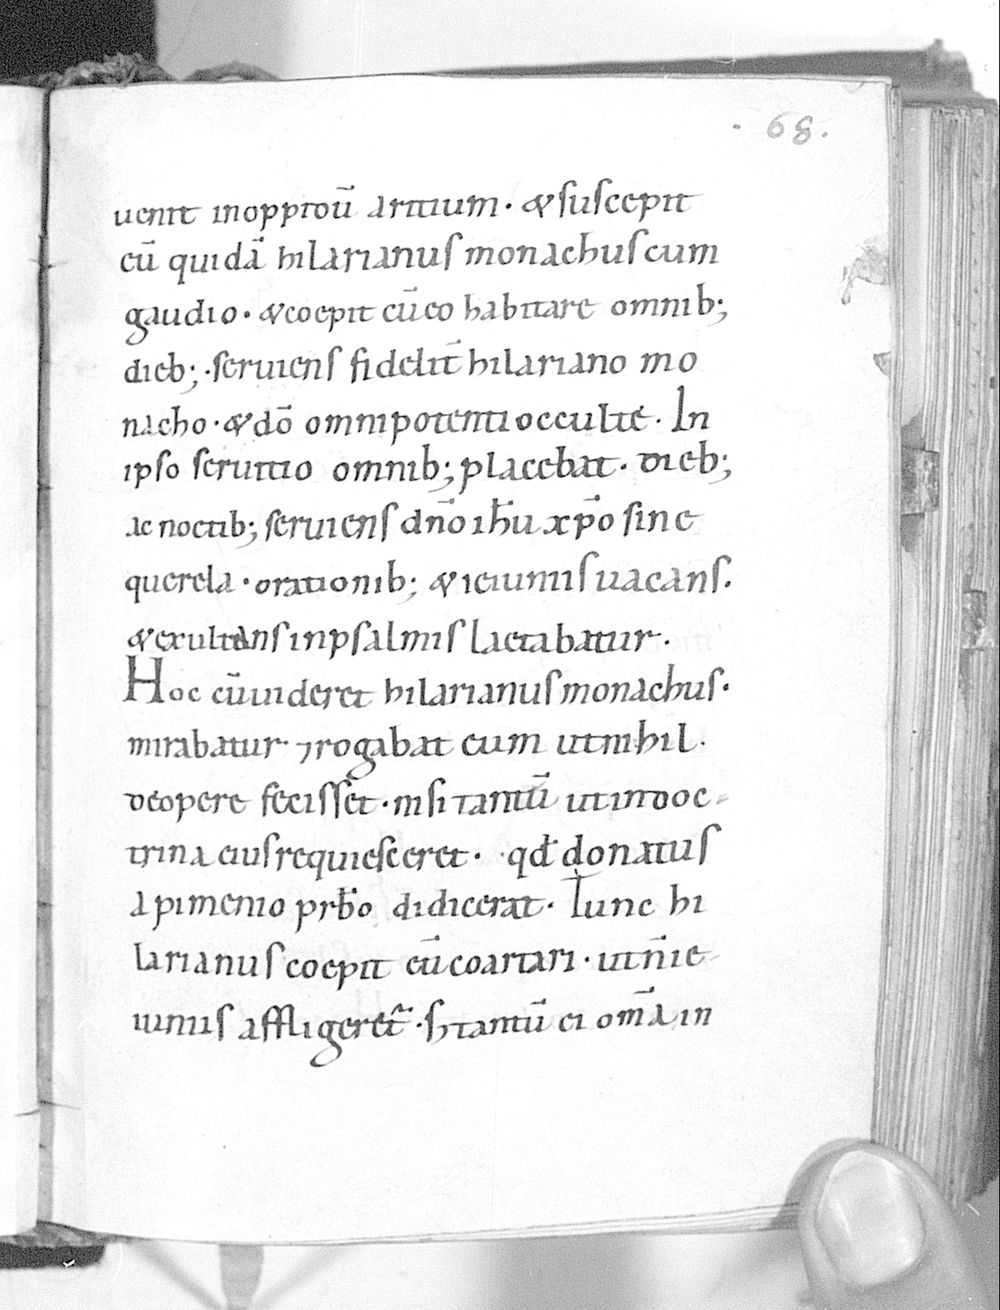 · 68.
uenit inoppidū aritium · & suscepit
cū quidā hilarianus monachus cum
gaudio · & coepit cū eo habitare omnib;
dieb; · seruiens fidelit̄ hilariano mo
nacho · & dō omnipotenti occulte · In
ipso seruitio omnib; placebat · dieb;
ac noctib; seruiens dn̄o ih̄u xp̄o sine
querela · orationib; & ieiuniis uacans.
& exultans in psalmis laetabatur ·
Hoc cū uideret hilarianus monachus ·
mirabatur · ⁊ rogabat eum ut nihil ·
de opere fecisset · nisi tantū ut in doc
trina eius requiesceret · qđ donatus
a pimenio prb̄o didicerat · Tunc hi
larianus coepit eū coartari · ut n̄ ie
iuniis affligeret̄ · S; tantū ei om̄a in